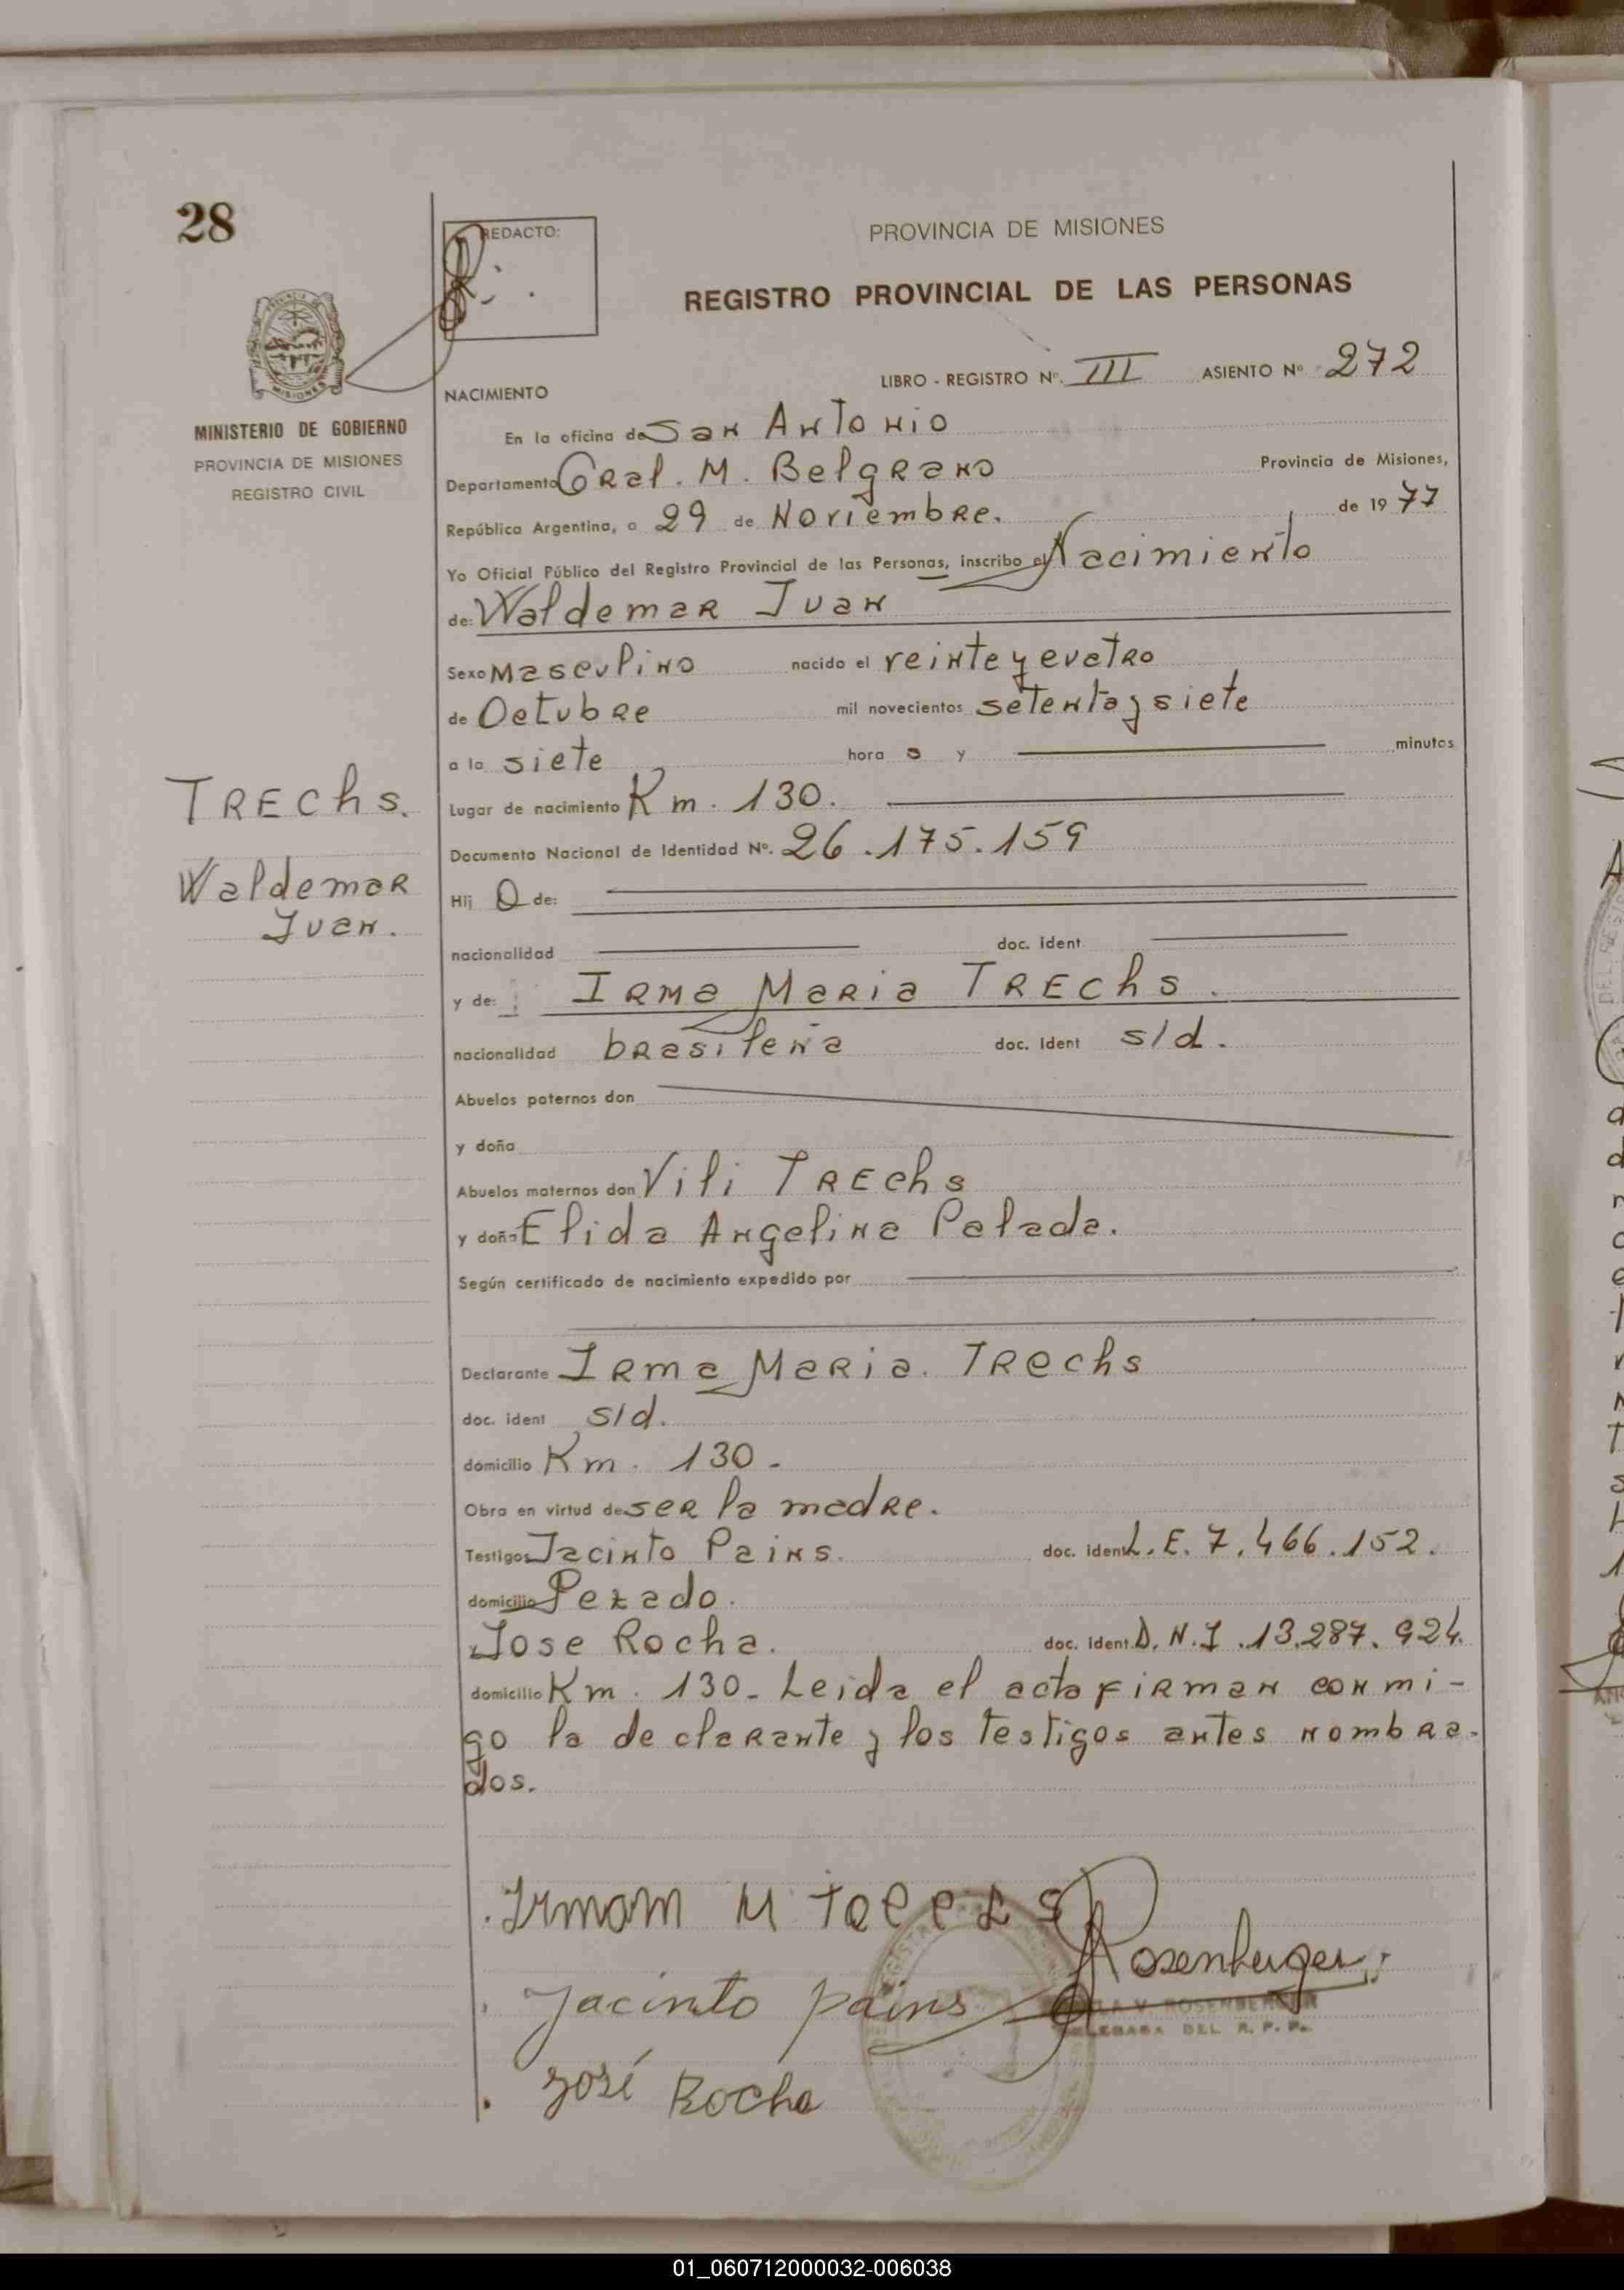 28
REDACTO:
PROVINCIA DE MISIONES
REGISTRO PROVINCIAL DE LAS PERSONAS
LIBRO - REGISTRO Nº. III ASIENTO Nº 272
NACIMIENTO
MINISTERIO DE GOBIERNO
PROVINCIA DE MISIONES
REGISTRO CIVIL
En la oficina de San Antonio
Departamento Gral. M. Belgrano Provincia de Misiones,
República Argentina, a 29 de Noviembre. de 1977
Yo Oficial Público del Registro Provincial de las Personas, inscribo el Nacimiento
de: Waldemar Juan
Sexo Masculino nacido el veinte y cuatro
de Octubre mil novecientos setenta y siete
a la siete hora s y minutos
TRECHS.
Waldemar
Juan.
Lugar de nacimiento Km. 130.
Documento Nacional de Identidad Nº. 26.175.159
Hij o de:
nacionalidad doc. ident
y de: Irma Maria TRECHS.
nacionalidad brasileña doc. ident s/d.
Abuelos paternos don
y doña
Abuelos maternos don Vili TRECHS
y doña Elida Angelina Palada.
Según certificado de nacimiento expedido por
Declarante Irma Maria. Trechs
doc. ident s/d.
domicilio Km. 130-
Obra en virtud de ser la madre.
Testigos Jacinto Pains. doc. ident L.E. 7.466.152.
domicilio Pezado.
Jose Rocha. doc. ident. D.N.I. 13.287.924.
domicilio Km. 130- Leida el acta firman conmi-
go la declarante y los testigos antes nombra-
dos.
Jacinto pains
Rosenberger
ROSENBERGER
DELEGADA DEL R. P. P.
José Rocha
01_060712000032-006038